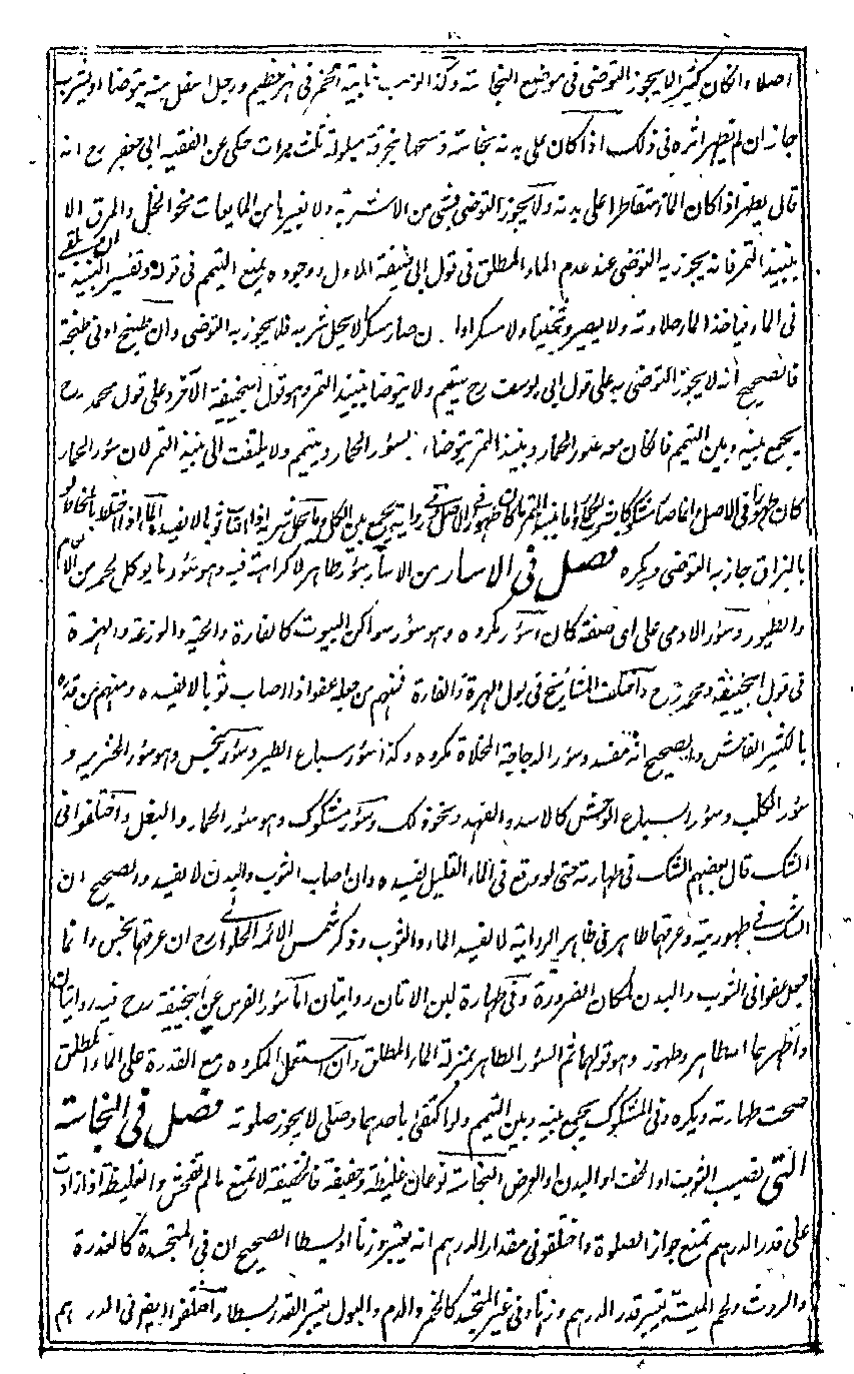 اصلا وان كان كثيرا لا يجوز التوضى فى موضع النجاسة وكذا لو صب خابية الخمر فى نهر عظيم ورجل اسفل منه يتوضا او يشرب
جاز ان لم يظهر اثره فى ذلك اذا كان على بدنه نجاسة فمسحها بخرقة مبلولة ثلث مرات حكى عن الفقيه ابى جعفر رح انه
قال يطهر اذا كان الماء متقاطرا على بدنه ولا يجوز التوضى بشى من الاشربة ولا بغيرها من المايعات نحو الخل والمرق الا
بنبيذ التمر فانه يجوز به التوضى عند عدم الماء المطلق فى قول ابى حنيفة الاول ووجوده يمنع التيمم فى قوله وتفسير النبيذ ان يلقى
فى الماء فياخذ الماء حلاوته ولا يصير ثخينا ولا مسكرا وان صار مسكرا لا يحل شربه فلا يجوز به التوضى وان طبخ ادنى طبخة
فالصحيح انه لا يجوز التوضى به على قول ابى يوسف رح يتيمم ولا يتوضا بنبيذ التمر وهو قول ابيحنيفة الآخر وعلى قول محمد رح
يجمع بينه وبين التيمم فان كان معه سور الحمار ونبيذ التمر يتوضاء بسؤر الحمار ويتيمم ولا يلتفت الى نبيذ التمر لان سؤر الحمار
كان طهورا فى الاصل وانما صار مشكوكا اما نبيذ التمر ما كان طهورا فى الاصل وفى رواية يجمع بين الكل وما يحل شربه اذا اصاب ثوبا لا يفسده الماء اذا اختلط بالمخاط او
بالبزاق جاز به التوضى ويكره فصل فى الاسار من الاسار سؤر طاهر لا كراهة فيه وهو سؤر ما يوكل لحمه من الانعام
والطيور وسؤر الادمى على اى صفة كان وسؤر مكروه وهو سؤر سواكن البيوت كالفارة والحية والوزغة والهرة
فى قول ابيحنيفة ومحمد رح واختلف المشايخ فى بول الهرة والفارة فمنهم من جعله عفوا اذا اصاب ثوبا لا يفسده ومنهم من قدره
بالكثير الفاحش والصحيح انه مفسد وسؤر الدجاجة المخلاة مكروه وكذا سؤر سباع الطير وسؤر نجس وهو سؤر الخنزير و
سؤر الكلب وسؤر سباع الوحش كالاسد والفهد ونحو ذلك وسؤر مشكوك وهو سؤر الحمار والبغل واختلفوا فى
الشك قال بعضهم الشك فى طهارته حتى لو وقع فى الماء القليل يفسده وان اصاب الثوب والبدن لا يفسد والصحيح ان
الشك فى طهوريته وعرقها طاهر فى ظاهر الرواية لا يفسد الماء والثوب وذكر شمس الائمة الحلوانى رح ان عرقها نجس وانما
جعل عفوا فى الثوب والبدن لمكان الضرورة وفى طهارة لبن الاتان روايتان اما سؤر الفرس عن ابيحنيفة رح فيه روايتان
واظهرهما انه طاهر وطهور وهو قولهما ثم السؤر الطاهر بمنزلة الماء المطلق وان استعمل المكروه مع القدرة على الماء المطلق
صحت طهارته ويكره وفى المشكوك يجمع بينه وبين التيمم ولو اكتفى باحدهما وصلى لا يجوز صلوته فصل فى النجاسة
التى تصيب الثوب او الخف او البدن او الارض النجاسة نوعان غليظة وخفيفة فالخفيفة لا تمنع ما لم تفحش والغليظة اذا زادت
على قدر الدرهم تمنع جواز الصلوة واختلفوا فى مقدار الدرهم انه يعتبر وزنا او بسطا الصحيح ان فى المتجسدة كالعذرة
والروث ولحم الميتة يعتبر قدر الدرهم وزنا وفى غير المتجسد كالخمر والدم والبول يعتبر القدر بسطا واختلفوا ايضا فى الدرهم